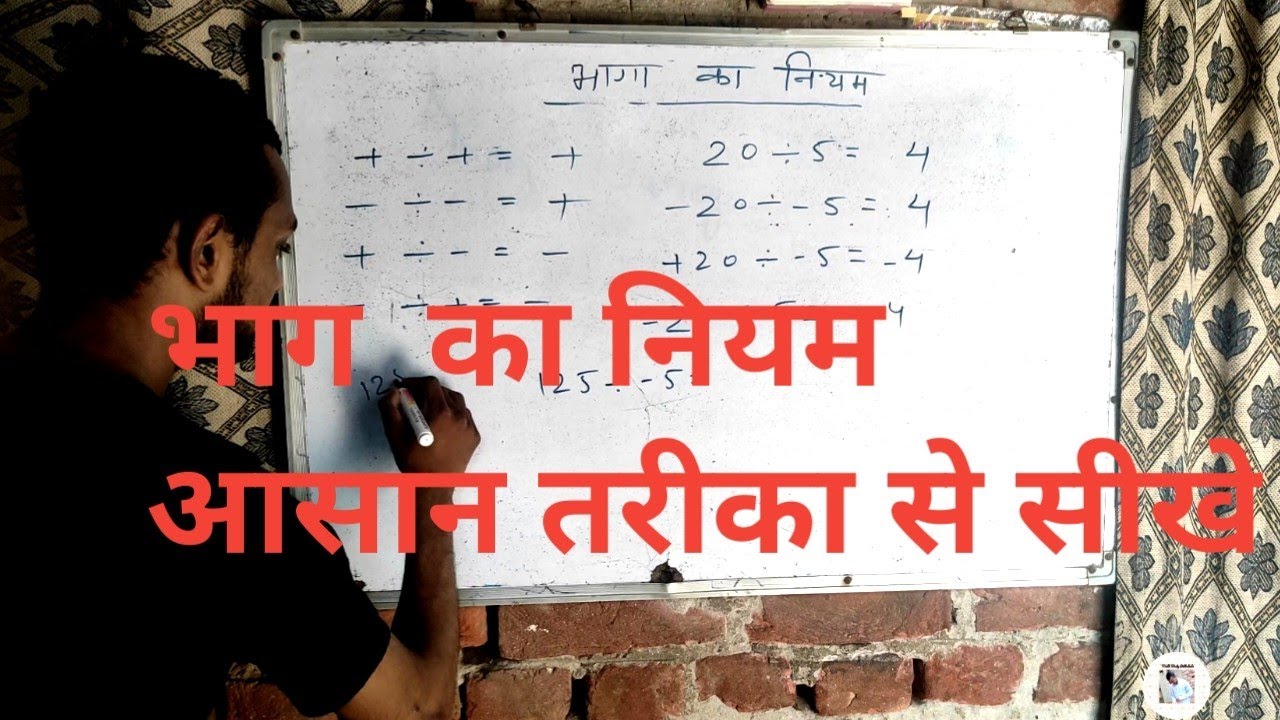 भागा का नियम
+ ÷ + = + 20 ÷ 5 = 4
- ÷ - = + -20 ÷ -5 = 4
+ ÷ - = - +20 ÷ -5 = -4
÷ + = - 4
भाग का नियम
125 ÷ -5
आसान तरीका से सीखे